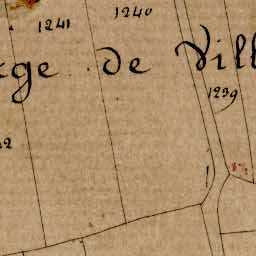 1240
1241
ge de Vill
1239